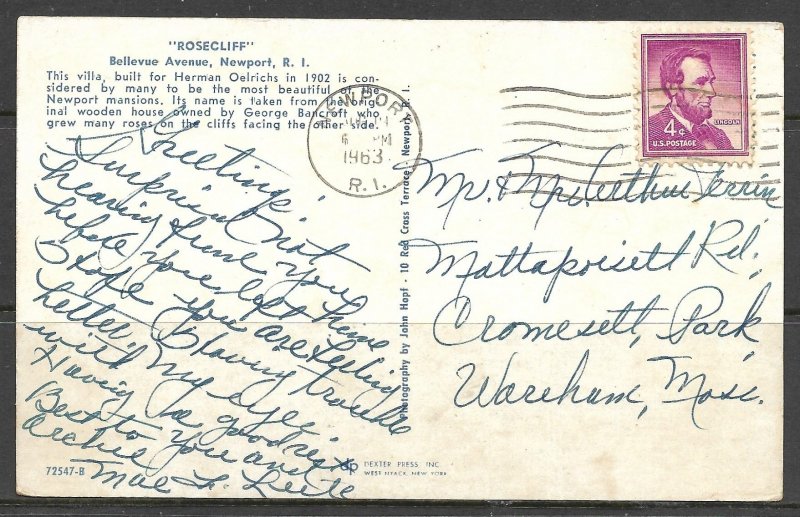 "ROSECLIFF"
Bellevue Avenue, Newport, R. I.
This villa, built for Herman Oelrichs in 1902 is con-
sidered by many to be the most beautiful of the
Newport mansions. Its name is taken from the orig-
inal wooden house owned by George Bancroft who
grew many roses on the cliffs facing the other side.
Greetings!
Surprised not
hearing from you
before you left home
Hope you are feeling
better. Having trouble
with my eyes.
Having a good rest
Best to you and
Archie
Mae L. Leite
72547-B
Photography by John Hopf - 10 Red Cross Terrace, Newport, R. I.
DEXTER PRESS, INC.
WEST NYACK, NEW YORK
NEWPORT
6 PM
1963
R. I.
4¢
LINCOLN
U.S. POSTAGE
Mr. & Mrs. Arthur Perrin
Mattapoisett Rd.
Cromesett, Park
Wareham, Mass.